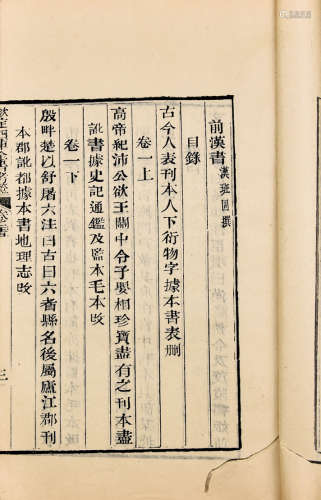 前漢書漢班固撰
目錄
古今人表刊本人下衍物字據本書表刪
卷一上
高帝紀沛公欲王關中令子嬰相珍寶盡有之刊本盡
訛書據史記通鑑及監本毛本改
卷一下
殷畔楚以舒屠六注曰古曰六者縣名後屬廬江郡刊
本郡訛都據本書地理志改
三